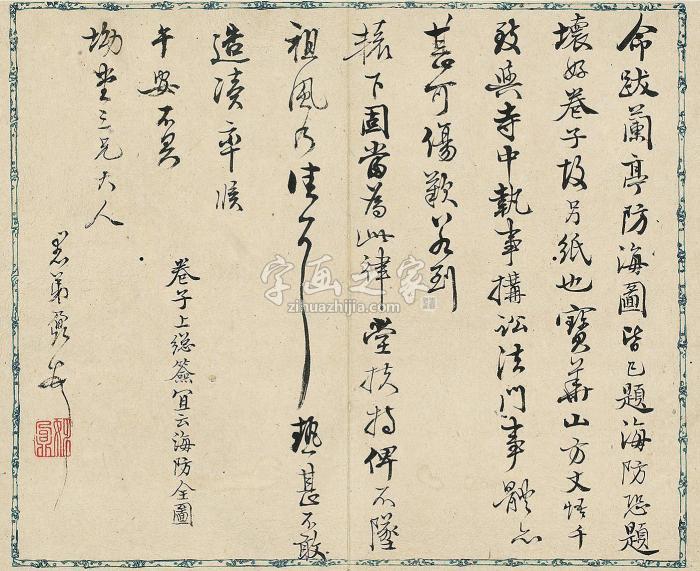 命跋蘭亭防海圖皆已題海防恐題
壞好卷子故另紙也寶華山方丈悟千
致與寺中執事搆訟法門事體亦
甚可傷歎若到
轅下固當為此肆堂扶持俾不墜
祖風乃佳耳熱甚不敢
造凟率候
午安不具
坳堂三兄大人
愚弟鼐
卷子上總簽宜云海防全圖
字画之家
zihuazhijia.com